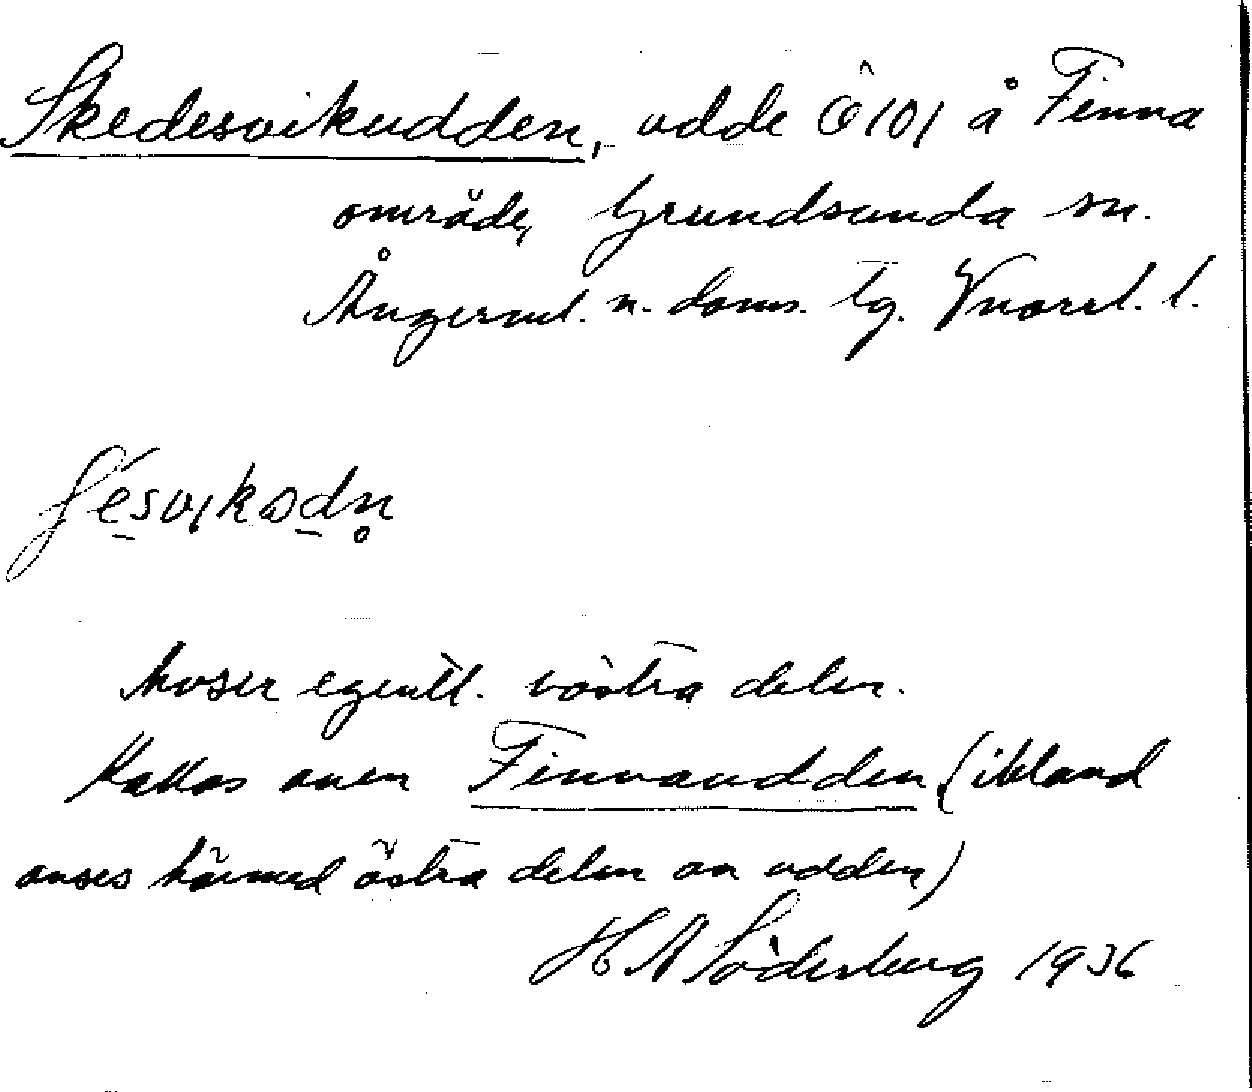 Skedesvikudden, udde Ö101 å Finna
område, Grundsunda sn.
Ångerml. n. doms. lg. Vnorrl. l.
ʃesvikodn̥
Avser egentl. västra delen.
Kallas även Finnaudden (ibland
anses härmed östra delen av udden)
H A Söderberg 1936